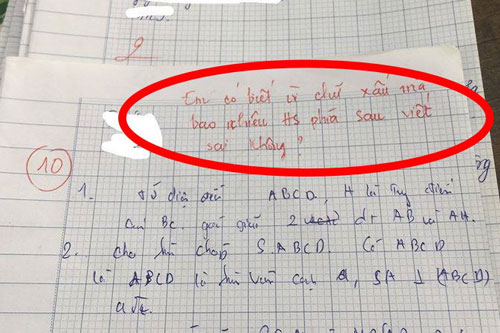 Em có biết vì chữ xấu mà
bao nhiêu HS phía sau viết
sai không?
10
1. Tứ diện đều ABCD, H là trung điểm
BC. góc giữa 2 dt AB và AH.
2. cho hình chóp S.ABCD. Có ABCD
ABCD là hình vuông cạnh a, SA ⊥ (ABCD)
a√2.